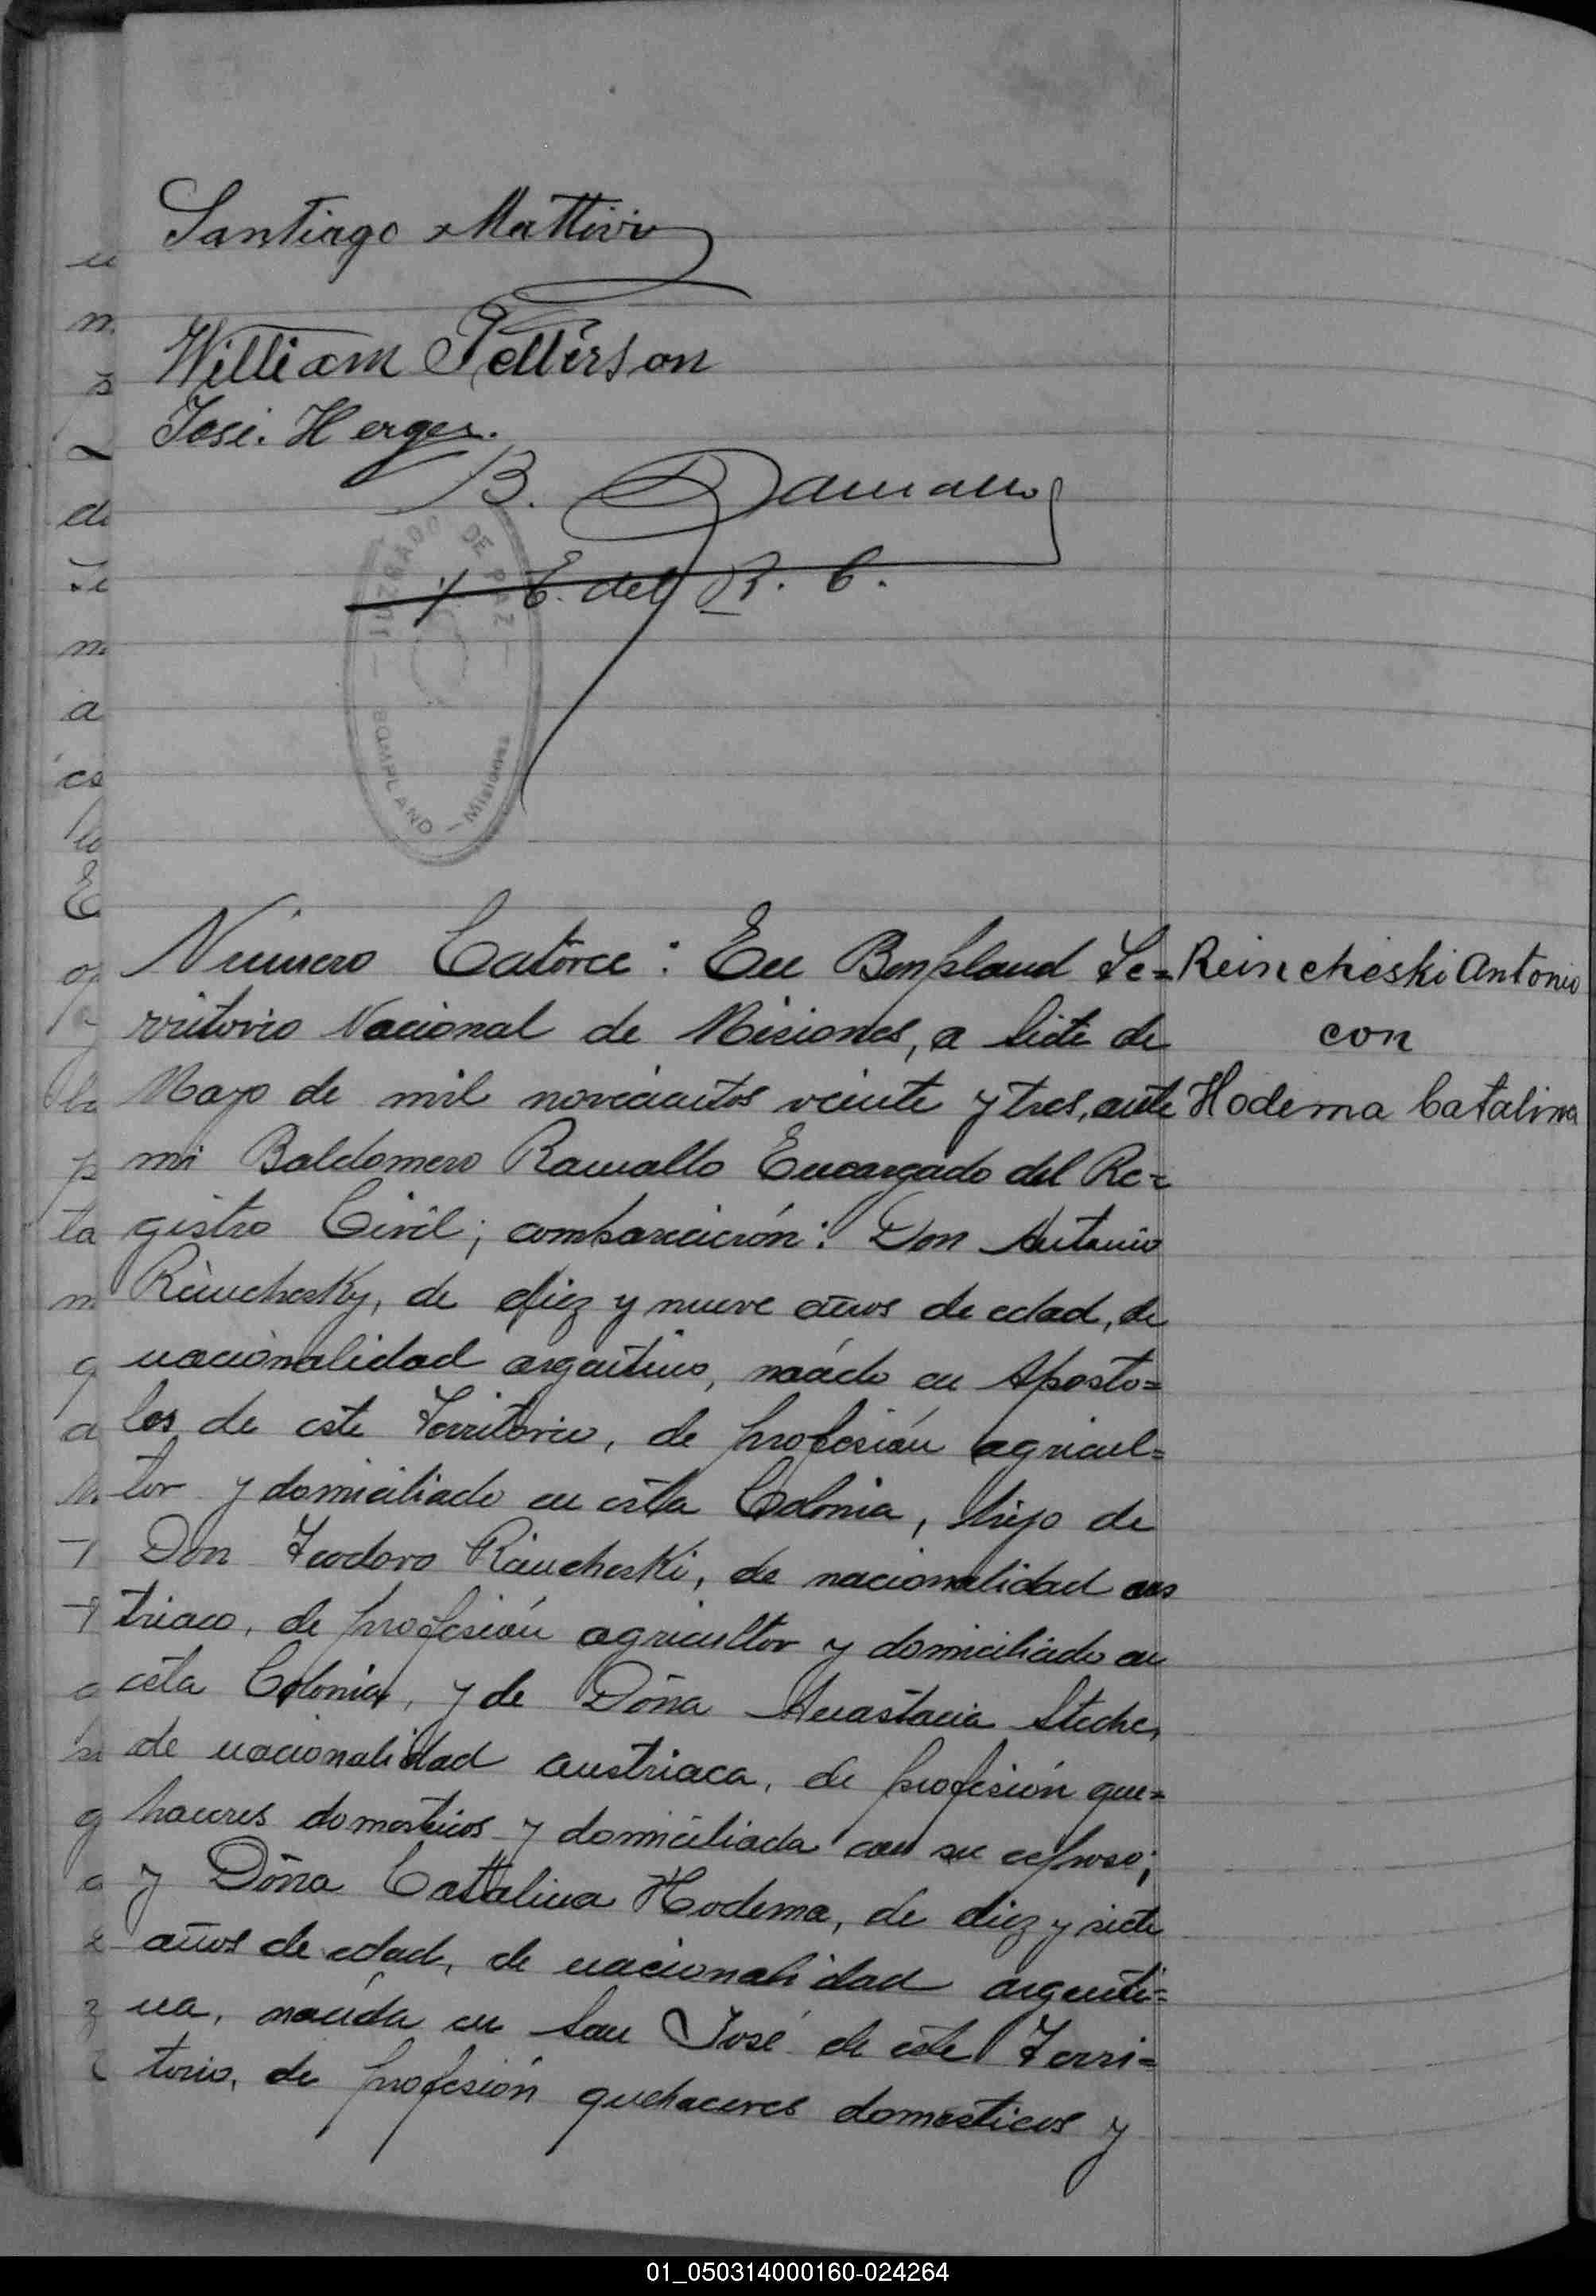 Santiago Mattivi
William Petterson
José. Herges.
B. Ramallo
E. del R. C.
JUZGADO DE PAZ
BOMPLAND - Misiones
Número Catorce: En Bonpland Te= Reincheski Antonio
rritorio Nacional de Misiones, a siete de con
Mayo de mil novecientos veinte y tres, ante Hodema Catalina
mi Baldomero Ramallo Encargado del Re=
gistro Civil; comparecieron: Don Antonio
Reinchesky, de diez y nueve años de edad, de
nacionalidad argentino, nacido en Aposto=
les de este Territorio, de profesión agricul=
tor y domiciliado en esta Colonia, hijo de
Don Teodoro Reincheski, de nacionalidad aus
triaco, de profesión agricultor y domiciliado en
esta Colonia, y de Doña Anastacia Steche,
de nacionalidad austriaca, de profesión que=
haceres domesticos y domiciliada con su esposo;
y Doña Catalina Hodema, de diez y siete
años de edad, de nacionalidad argenti=
na, nacida en San José de este Terri=
torio, de profesión quehaceres domesticos y
01_050314000160-024264